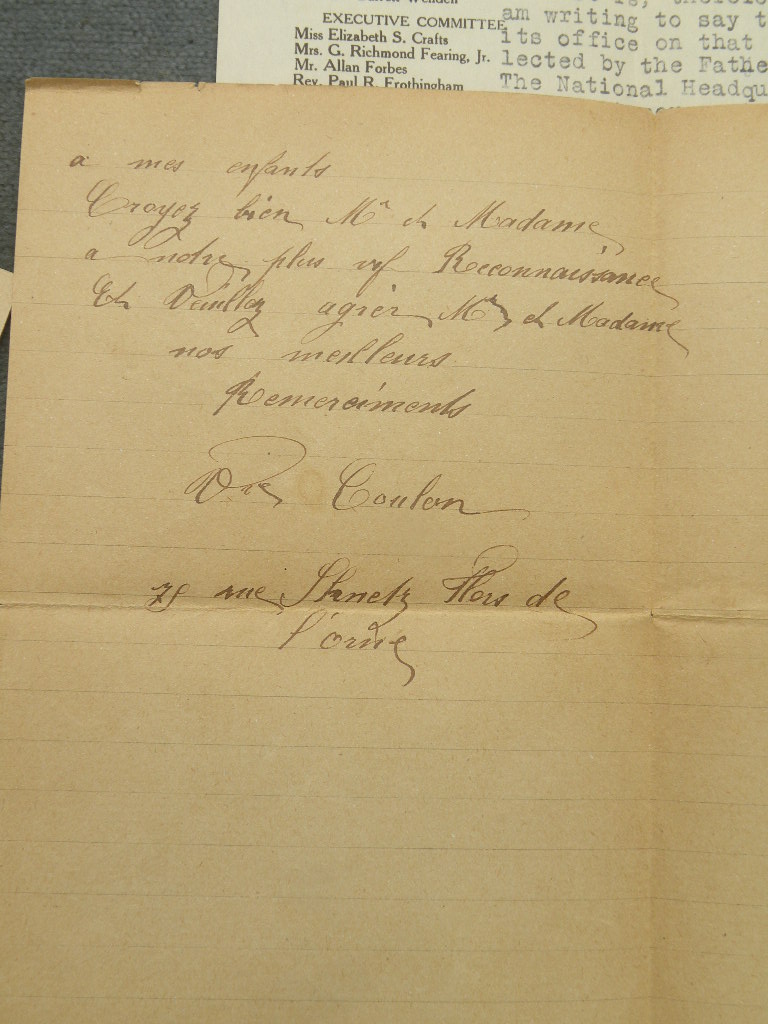 EXECUTIVE COMMITTEE
Miss Elizabeth S. Crafts
Mrs. G. Richmond Fearing, Jr.
Mr. Allan Forbes
Rev. Paul R. Frothingham
am writing to say t
its office on that
lected by the Fathe
The National Headqu
a mes enfants
Croyez bien Mr et Madame
a notre plus vif Reconnaissance
Et Veuillez agrier Mr et Madame
nos meilleurs
Remerciments
Vve Coulon
rue Flers de
l'orne